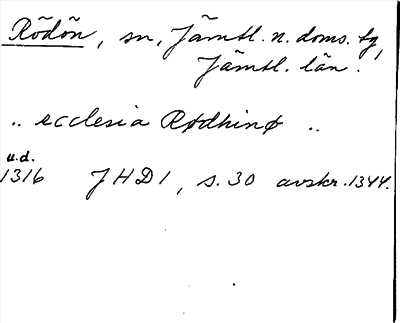 Rödön, sn, Jämtl. n. doms. tg,
Jämtl. län.
.. ecclesia Rødhinø ..
u.d.
1316 JHD 1, s. 30 avskr. 1344.